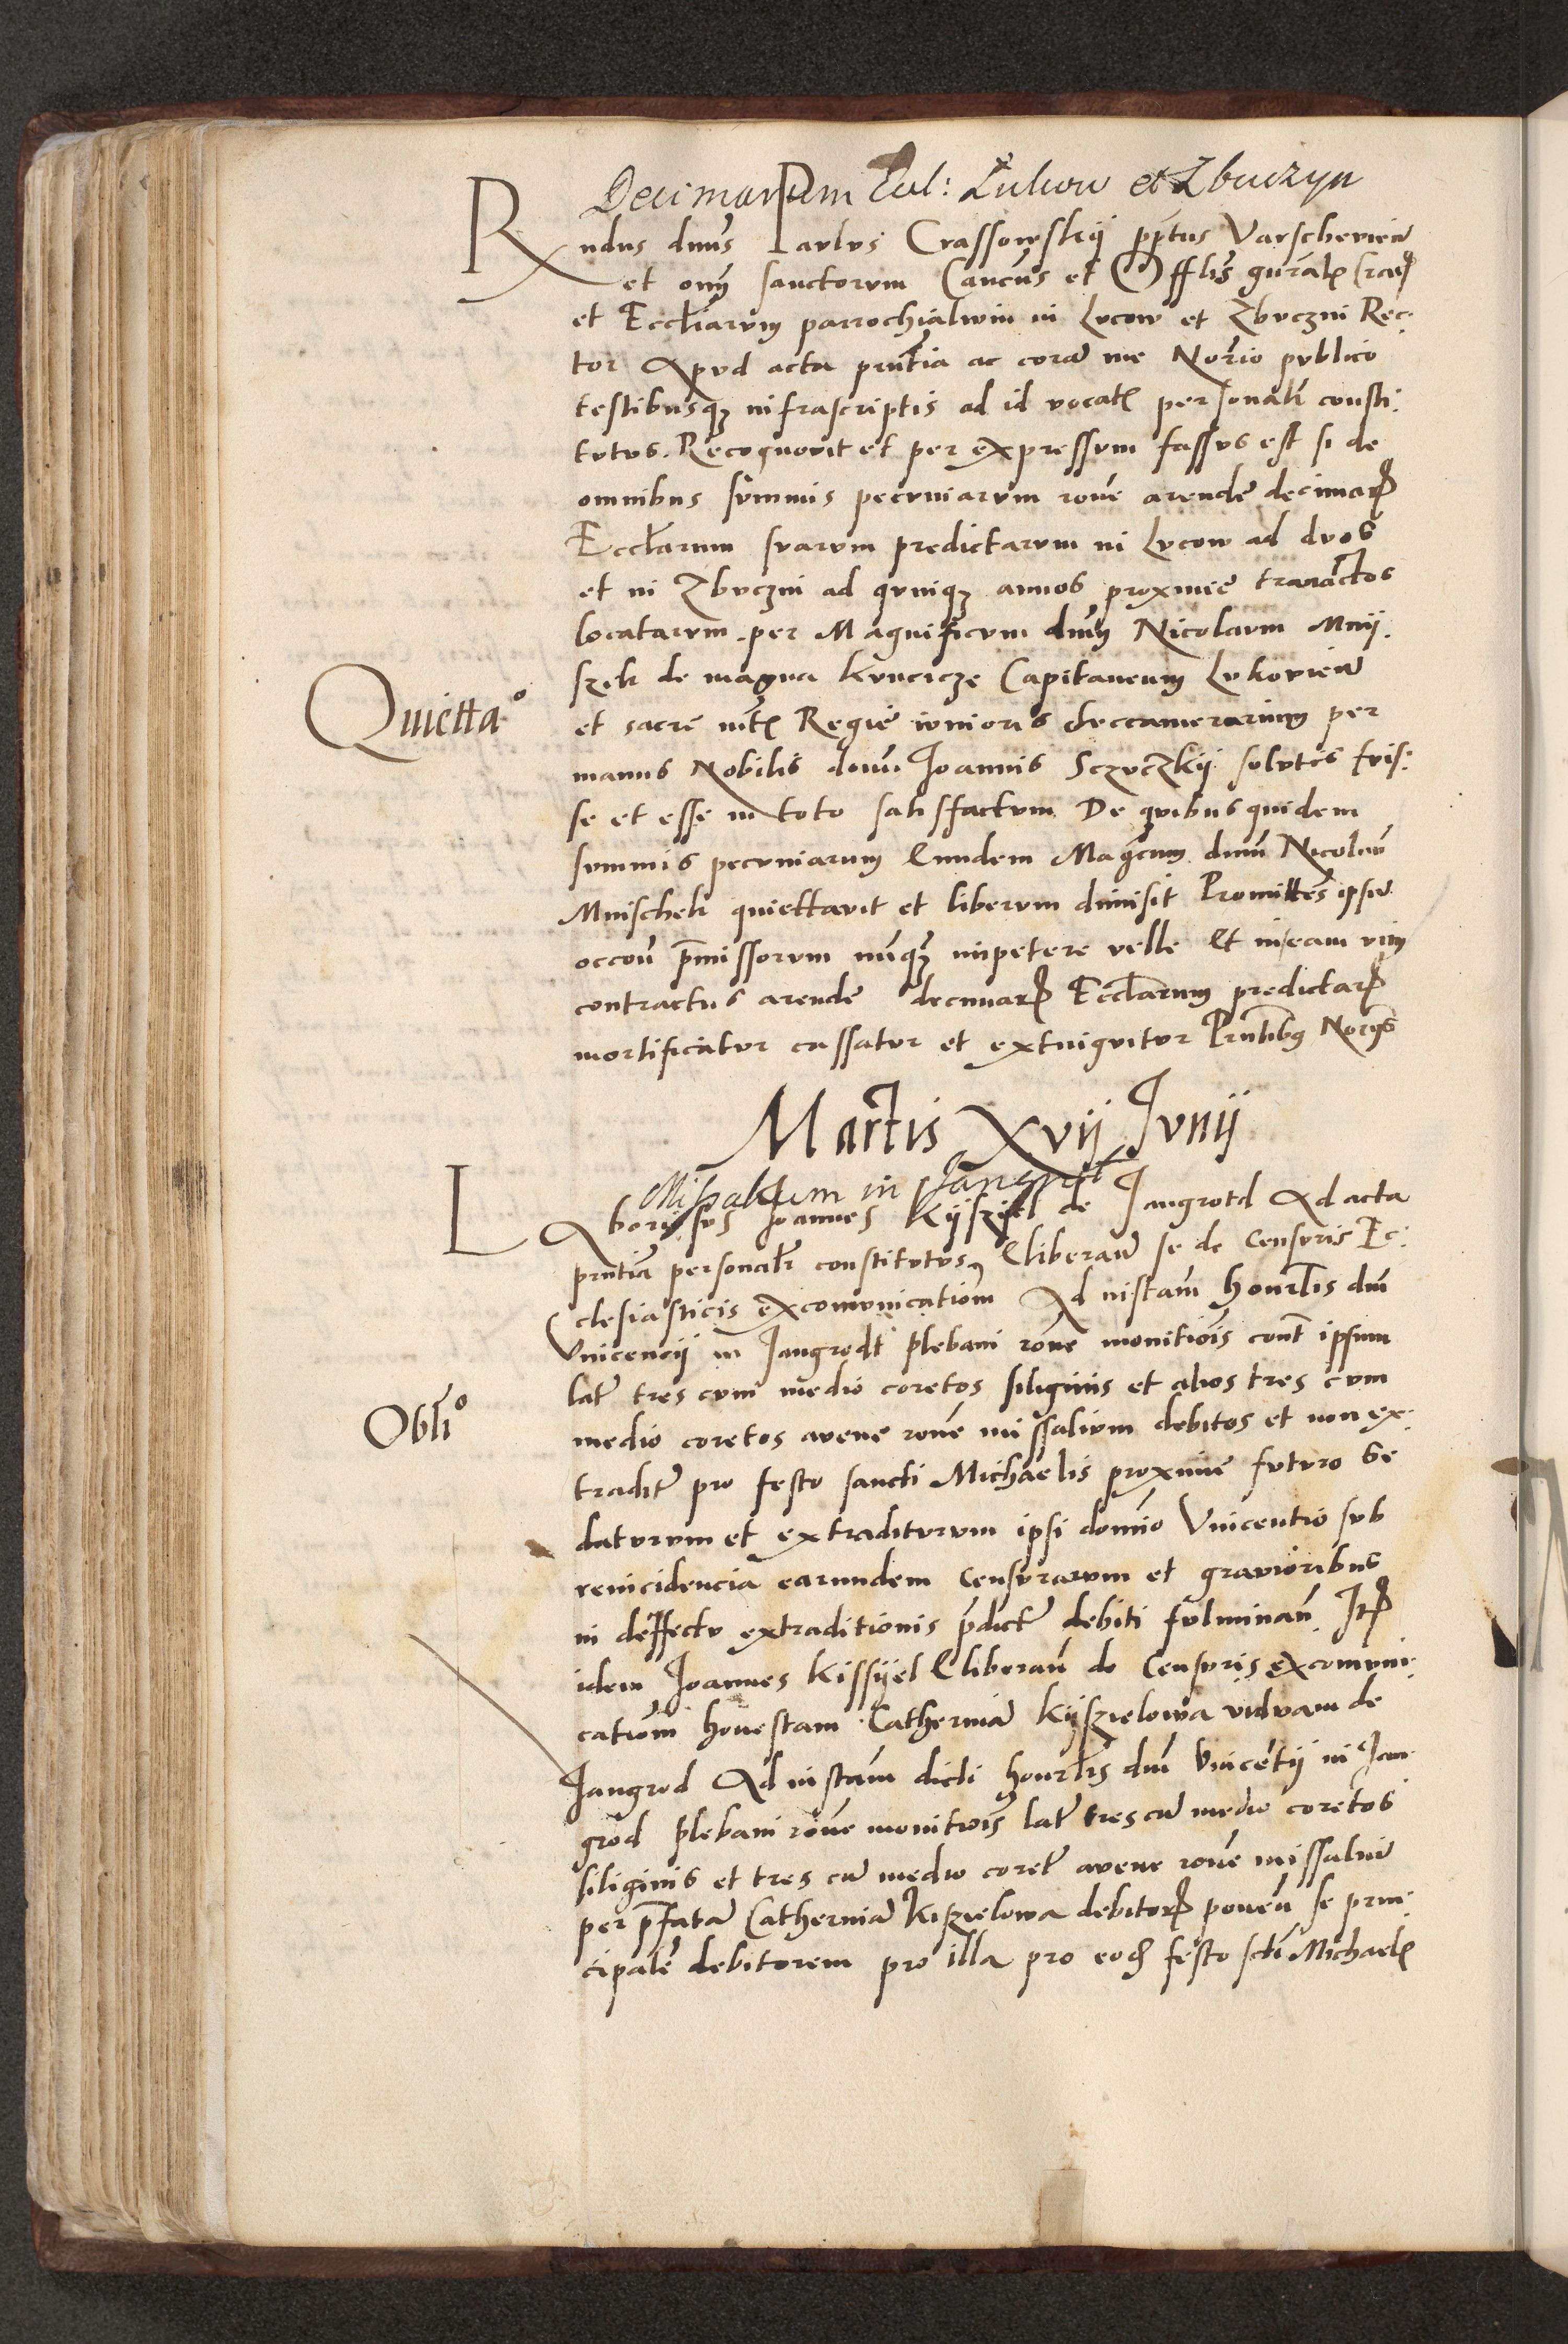 Decimarum Eccl: Lukow et Zbuczyn
Rndus dnus Paulus Crassowskij pptus Varschevien
et onm sanctorum Cancus et Offlis gnralis
et Eccliarum parrochialium in Lucow et Zbuczni Rec-
tor Apud acta pntia ac coram me Norio publico
testibusq infrascriptis ad id vocatis personalr consti-
tutus. Recognovit et per expressum fassus est si de
omnibus summis pecuniarum rone arende decimar
Ecclarum suarum predictarum in Lucow ad duos
et in Zbuczni ad quinq annos proxime transactos
locatarum per Magnificum dnm Nicolaum Mnij-
szek de magna Kunczicze Capitaneum Lukovien
et sacre mtis Regie iunioris succamerarium per
manus Nobilis domi Joannis Sczuczkij solutis fuis-
se et esse in toto satisfactum De quibus quidem
summis pecuniarum Eundem Magcum dnum Nicolau
Mnischek quiettavit et liberum dimisit Promittens ipsum
occone pmissorum nunq impetere velle Et in eam vim
contractus arende decimar Ecclarum predictar
mortificatur cassatur et extinguitur Pntibus Norijs
Quietta°
Martis xvij Junij
Missalium in Jangrot
Laboriosus Joannes Kijszijel de Jangrotd Ad acta
pntia personalr constitutus, Eliberan se de Censuris Ec-
clesiasticis excomunicationm Ad instam honrlis dni
Vincencij in Jangrodt plebani rone monitiois cont ipsum
late tres cum medio coretos siliginis et alios tres cum
medio coretos avene rone missalium debitos et non ex-
tradit pro festo sancti Michaelis proxime futuro se
daturum et extraditurum ipsi domino Vincentio sub
reincidencia earundem Censurarum et gravioribus
in deffectu extraditionis pdicte debiti fulminan Itm
idem Joannes Kissijel Eliberan de Censuris excomuni-
cationm honestam Catherina Kijszielowa viduam de
Jangrod Ad instam dicti honrlis dni Vincetij in Jan-
grod plebani rone monitiois late tres cu medio coretos
siliginis et tres cu medio coret avene rone missaliu
per pfatam Catherina Kiszielowa debitor ponen se prin-
cipale debitorem pro illa pro eod festo scti Michaelis
Obli°